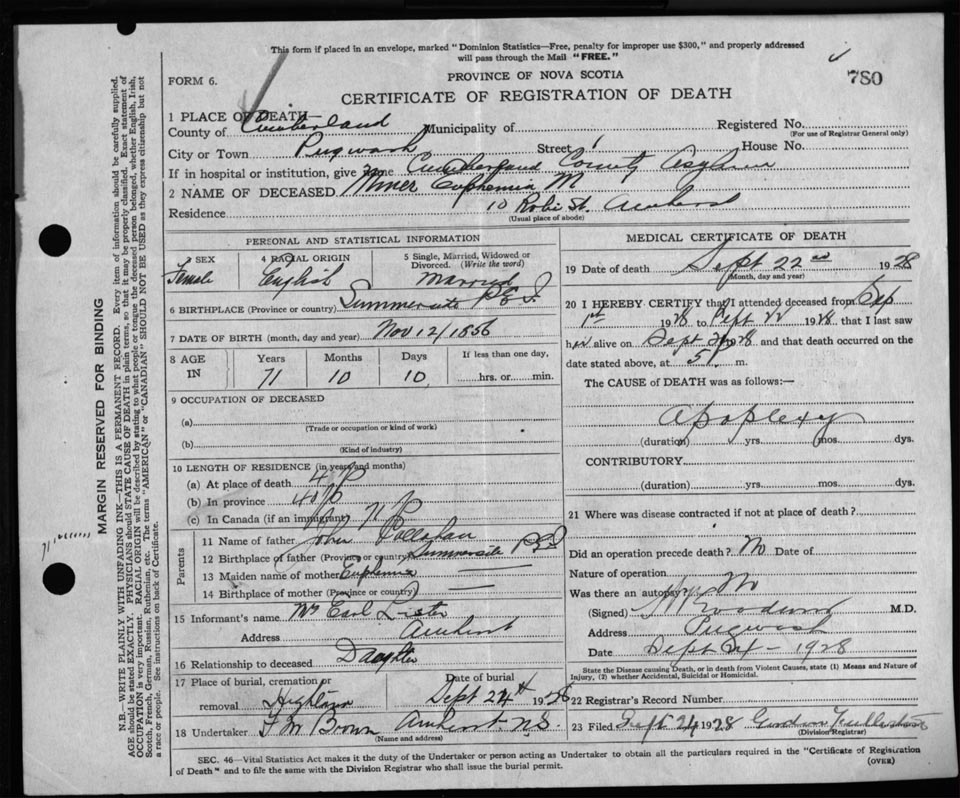 This form if placed in an envelope, marked "Dominion Statistics—Free, penalty for improper use $300," and properly addressed
will pass through the Mail "FREE."
FORM 6.
PROVINCE OF NOVA SCOTIA
780
CERTIFICATE OF REGISTRATION OF DEATH
1 PLACE OF DEATH—
County of Cumberland Municipality of Registered No.
(For use of Registrar General only)
City or Town Pugwash Street House No.
If in hospital or institution, give name Cumberland County Asylum
2 NAME OF DECEASED Euphemia M
Residence 10 Robie St. Amherst
(Usual place of abode)
PERSONAL AND STATISTICAL INFORMATION
3 SEX 4 RACIAL ORIGIN 5 Single, Married, Widowed or Divorced. (Write the word)
Female English Married
6 BIRTHPLACE (Province or country) Summerside P.E.I.
7 DATE OF BIRTH (month, day and year) Nov 12/1856
8 AGE IN Years Months Days If less than one day,
71 10 10 hrs. or min.
9 OCCUPATION OF DECEASED
(a)
(Trade or occupation or kind of work)
(b)
(Kind of industry)
10 LENGTH OF RESIDENCE (in years and months)
(a) At place of death
(b) In province
(c) In Canada (if an immigrant)
Parents
11 Name of father John Callahan
12 Birthplace of father (Province or country) Summerside P.E.I.
13 Maiden name of mother Euphemia
14 Birthplace of mother (Province or country)
15 Informant's name Mrs Earl Lister
Address Amherst
16 Relationship to deceased Daughter
17 Place of burial, cremation or removal Date of burial
Highland Sept 24th 1928
18 Undertaker F. M. Brown Amherst N.S.
(Name and address)
MEDICAL CERTIFICATE OF DEATH
19 Date of death Sept 22nd 1928
(Month, day and year)
20 I HEREBY CERTIFY that I attended deceased from Sep
1st 1928 to Sept 22 1928 that I last saw
her alive on Sept 1928 and that death occurred on the
date stated above, at 5 P. m.
The CAUSE of DEATH was as follows:—
Apoplexy
(duration) yrs. mos. dys.
CONTRIBUTORY
(duration) yrs. mos. dys.
21 Where was disease contracted if not at place of death?
Did an operation precede death? No Date of
Nature of operation
Was there an autopsy? No
(Signed) M.D.
Address Pugwash
Date Sept 24 - 1928
State the Disease causing Death, or in death from Violent Causes, state (1) Means and Nature of
Injury, (2) whether Accidental, Suicidal or Homicidal.
22 Registrar's Record Number
23 Filed Sept 24 1928
(Division Registrar)
SEC. 46—Vital Statistics Act makes it the duty of the Undertaker or person acting as Undertaker to obtain all the particulars required in the "Certificate of Registration
of Death" and to file the same with the Division Registrar who shall issue the burial permit.
(OVER)
MARGIN RESERVED FOR BINDING
N.B.—WRITE PLAINLY WITH UNFADING INK—THIS IS A PERMANENT RECORD. Every item of information should be carefully supplied.
AGE should be stated EXACTLY. PHYSICIANS should STATE CAUSE OF DEATH in plain terms, so that it may be properly classified. Exact statement of
OCCUPATION is very important. RACIAL ORIGIN will be described by stating to what people or tongue the deceased person belonged, whether English, Irish,
Scotch, French, German, Russian, Ruthenian, etc. The terms "AMERICAN" or "CANADIAN" SHOULD NOT BE USED as they express citizenship but not
a race or people. See instructions on back of Certificate.